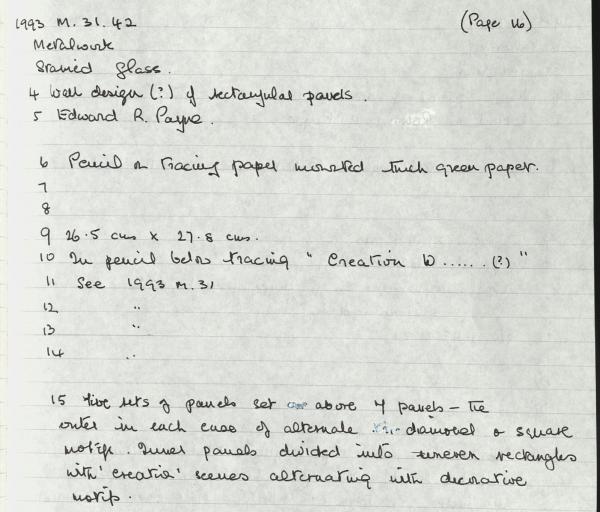 1993 M.31.42 (Page 16)
Metalwork
Stained Glass.
4 Wall design (?) of rectangular panels.
5 Edward R. Payne.
6 Pencil on tracing paper mounted thick green paper.
7
8
9 26.5 cms x 27.8 cms.
10 In pencil below tracing " Creation W ...... (?) "
11 See 1993 M.31
12 "
13 "
14 "
15 Five sets of panels set above 4 panels - The
outer in each case of alternate diamond or square
motifs. Inner panels divided into uneven rectangles
with 'creation' scenes alternating with decorative
motifs.